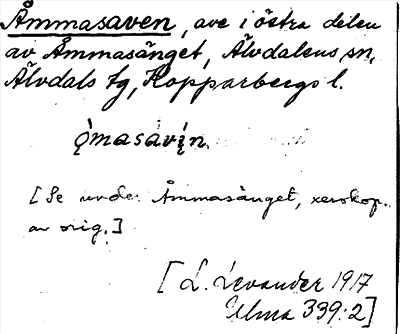 Åmmasaven, ave i östra delen
av Åmmasänget, Älvdalens sn,
Älvdals tg, Kopparbergs l.
ǫ̀masàvįn.
[Se under Åmmasänget, xerokop.
av orig.]
[L. Levander 1917
Ulma 339:2]